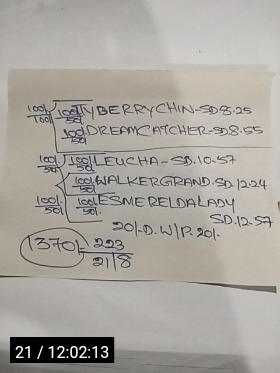 100/- 100/- TYBERRYCHIN-SD8.25
100/- 50/-
100/- DREAMCATCHER-SD8.55
50/-
100/- 100/- LEUCHA-SD.10.57
50/- 50/-
100/- WALKERGRAND.SD.12.24
50/-
100/- 100/- ESMERELDALADY
50/- 50/- SD.12.57
20/-D.W/P.20/-
1370/- 223
21/8
21 / 12:02:13